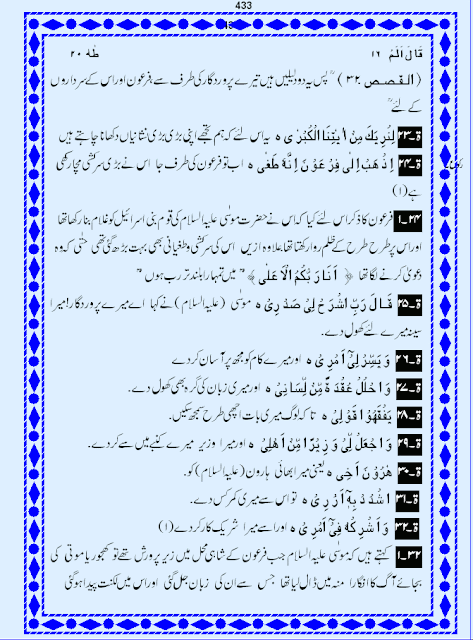 433
قَالَ اَلَمْ ١٦
طٰهٰ ٢٠
(القصص ٣٢) " پس یہ دو دلیلیں ہیں تیرے پروردگار کی طرف سے، فرعون اور اس کے سرداروں
کے لئے"
ق۔۲۳ لِنُرِيَكَ مِنْ اٰيٰتِنَا الْكُبْرٰى ہ یہ اس لئے کہ ہم تجھے اپنی بڑی بڑی نشانیاں دکھانا چاہتے ہیں
ق۔۲۴ اِذْهَبْ اِلٰى فِرْعَوْنَ اِنَّهٗ طَغٰى ہ اب تو فرعون کی طرف جا اس نے بڑی سرکشی مچا رکھی
ہے (۱)
۲۴۔۱ فرعون کا ذکر اس لئے کیا کہ اس نے حضرت موسٰی علیہ السلام کی قوم بنی اسرائیل کو غلام بنا رکھا تھا
اور اس پر طرح طرح کے ظلم روا رکھتا تھا علاوہ ازیں اس کی سرکشی و طغیانی بھی بہت بڑھ گئی تھی حتٰی کہ وہ
دعویٰ کرنے لگا تھا ﴿ اَنَا رَبُّكُمُ الْاَ عْلٰى ﴾ " میں تمہارا بلند تر رب ہوں"
ق۔۲۵ قَالَ رَبِّ اشْرَحْ لِىْ صَدْرِىْ ہ موسٰی (علیہ السلام) نے کہا اے میرے پروردگار! میرا
سینہ میرے لئے کھول دے۔
ق۔۲۶ وَ يَسِّرْ لِىْۤ اَمْرِىْ ہ اور میرے کام کو مجھ پر آسان کر دے
ق۔۲۷ وَاحْلُلْ عُقْدَةً مِّنْ لِّسَانِىْ ہ اور میری زبان کی گرہ بھی کھول دے۔
ق۔۲۸ يَفْقَهُوْا قَوْلِىْ ہ تاکہ لوگ میری بات اچھی طرح سمجھ سکیں۔
ق۔۲۹ وَاجْعَلْ لِّىْ وَزِيْرًا مِّنْ اَهْلِىْ ہ اور میرا وزیر میرے کنبے میں سے کر دے۔
ق۔۳۰ هٰرُوْنَ اَخِى ہ یعنی میرا بھائی ہارون (علیہ السلام) کو۔
ق۔۳۱ اشْدُدْ بِهٖۤ اَزْرِىْ ہ تو اس سے میری کمر کس دے۔
ق۔۳۲ وَاَشْرِكْهُ فِىْۤ اَمْرِىْ ہ اور اسے میرا شریک کار کر دے (۱)
۳۲۔۱ کہتے ہیں کہ موسٰی علیہ السلام جب فرعون کے شاہی محل میں زیر پرورش تھے تو کھجور یا موتی کی
بجائے آگ کا انگارا منہ میں ڈال لیا تھا جس سے ان کی زبان جل گئی اور اس میں لکنت پیدا ہو گئی